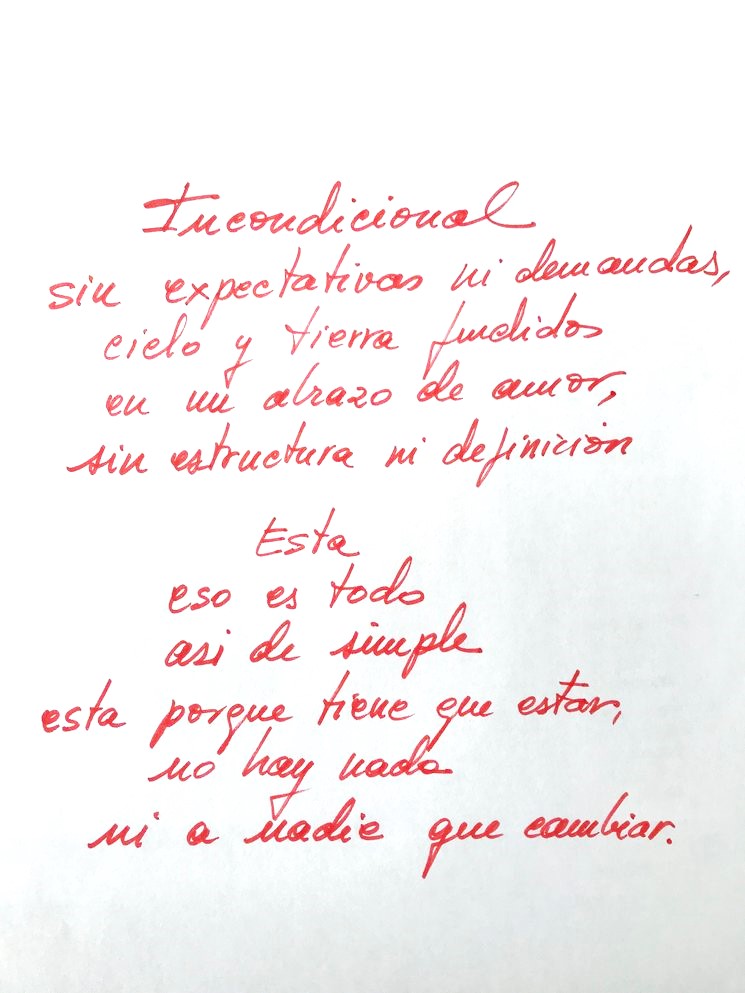 Incondicional
sin expectativas ni demandas,
cielo y tierra fundidos
en un abrazo de amor,
sin estructura ni definición
Esta
eso es todo
asi de simple
esta porque tiene que estar,
no hay nada
ni a nadie que cambiar.